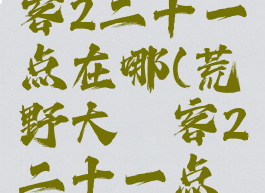 客2二十一
点在哪(荒
野大 客2
二十一点